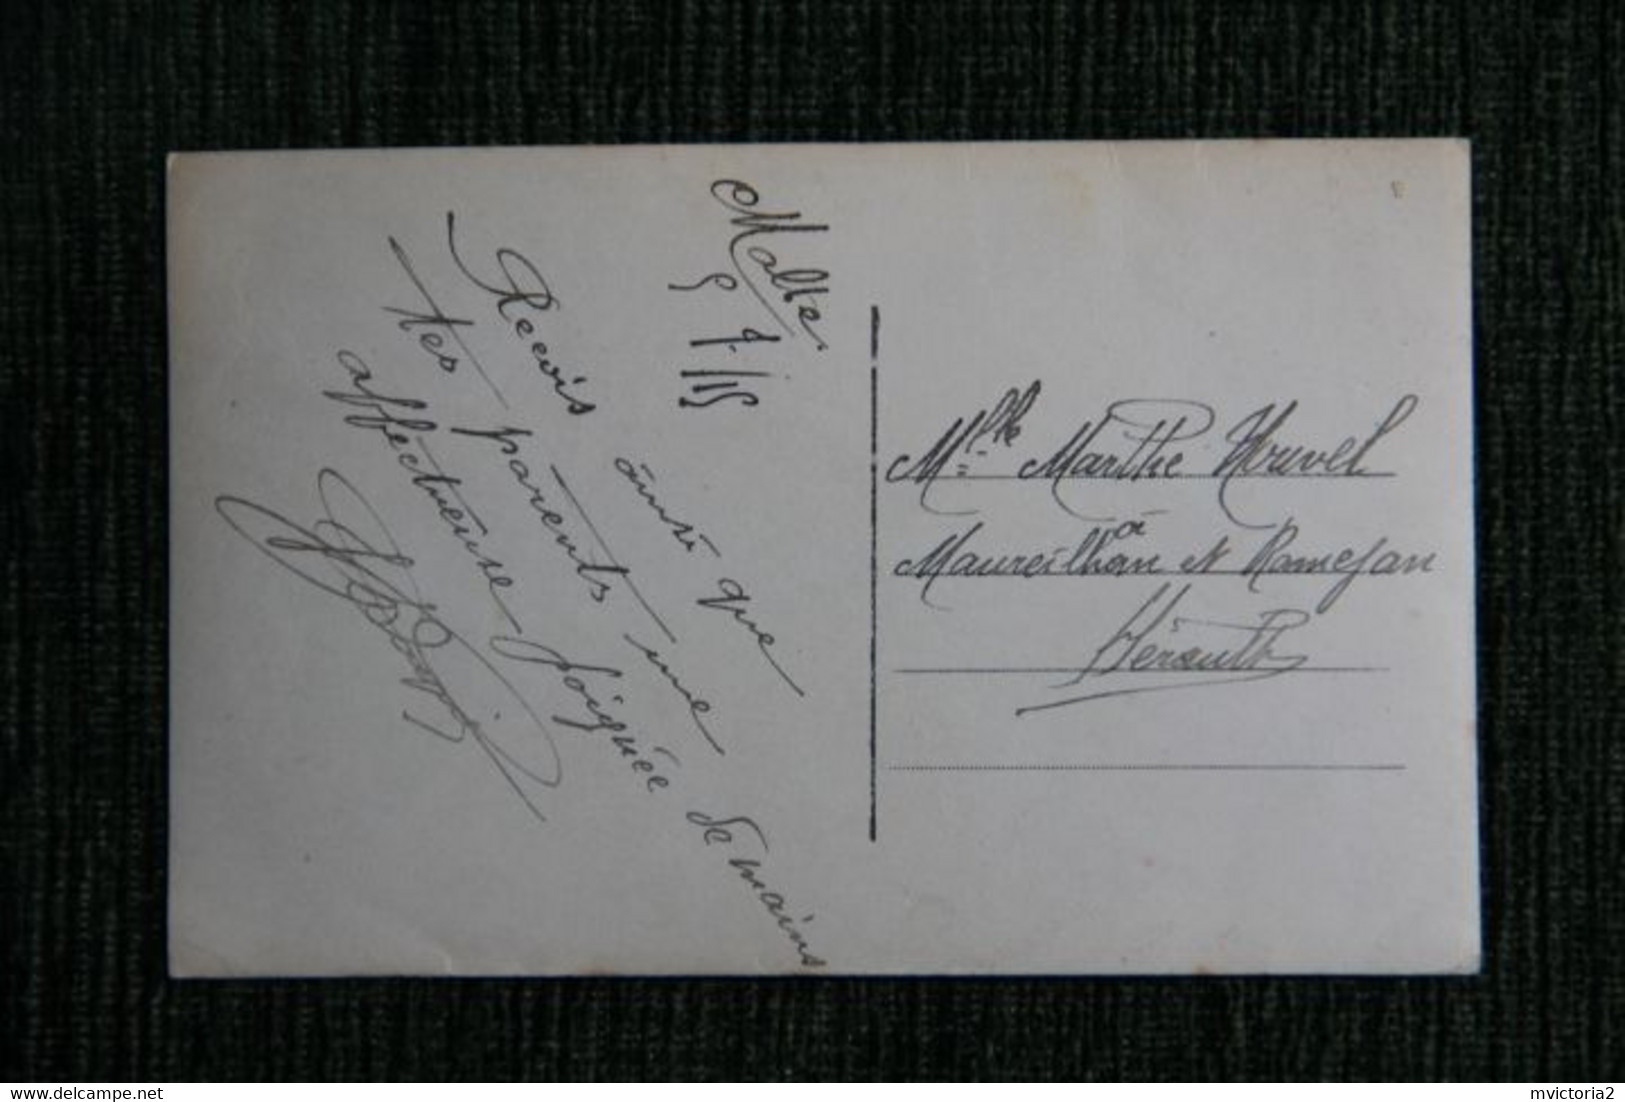 Malte
5/7/15
Recois ainsi que
tes parents une
affectueuse poignée de mains
Mlle Marthe
à
Maureilhan et Ramejan
Hérault
www.delcampe.net
mvictoria2